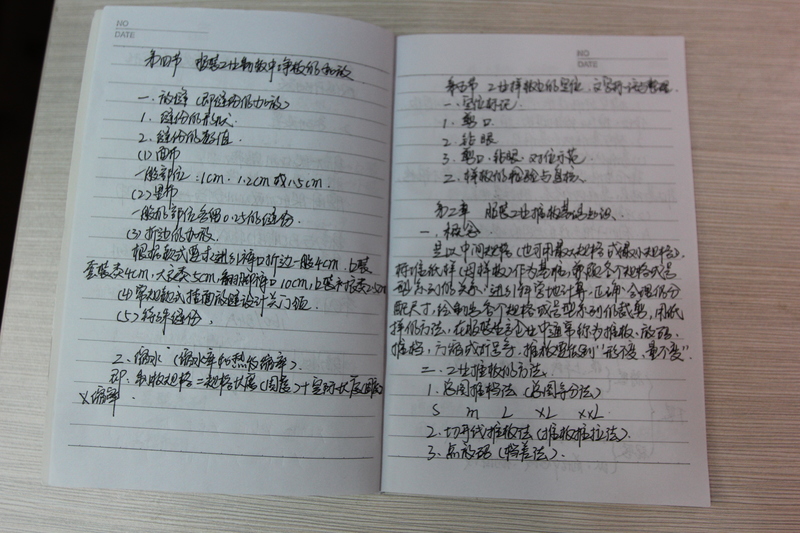 NO
DATE
第四节 服装工业制板中净板的加放
一、放缝（即缝份的加放）
1. 缝份的形状
2. 缝份的数值
(1) 面布
一般部位：1cm、1.2cm或1.5cm.
(2) 里布
一般部位会留0.25的缝份
(3) 折边的加放.
根据款式要求进行裤口折边一般4cm，上装
套装类4cm，大衣类5cm，裤口10cm，上装
(4) 常规款式挂面的缝设计关门值
(5) 特殊缝份.
2. 缩水（缩水率和热缩率）
即：制板规格＝规格长度（围度）＋实际长度
×缩率.
NO
DATE
第五节 工业样板的定位、文字标记与整理
一、定位标记
1. 剪口
2. 钻眼
3. 剪口、钻眼、对位示范
二、样板的检验与复核
第二章 服装工业推板基础知识.
一、概念
是以中间规格（也可用最大规格或最小规格）
标准板样（母样板）作为基础，兼顾各个规格或号
型系列的关系，进行科学地计算，正确、合理的分
配尺寸，绘制出各个规格或号型系列的裁剪，用纸
样的方法，在服装生产企业中通常称为推板、放码、
推档，"形不变，量不变".
二、工业推板的方法.
1. 总图推档法（总图等分法）
S m L XL XXL
2. 切开线推板法（推板推拉法）.
3. 点放码（档差法）.